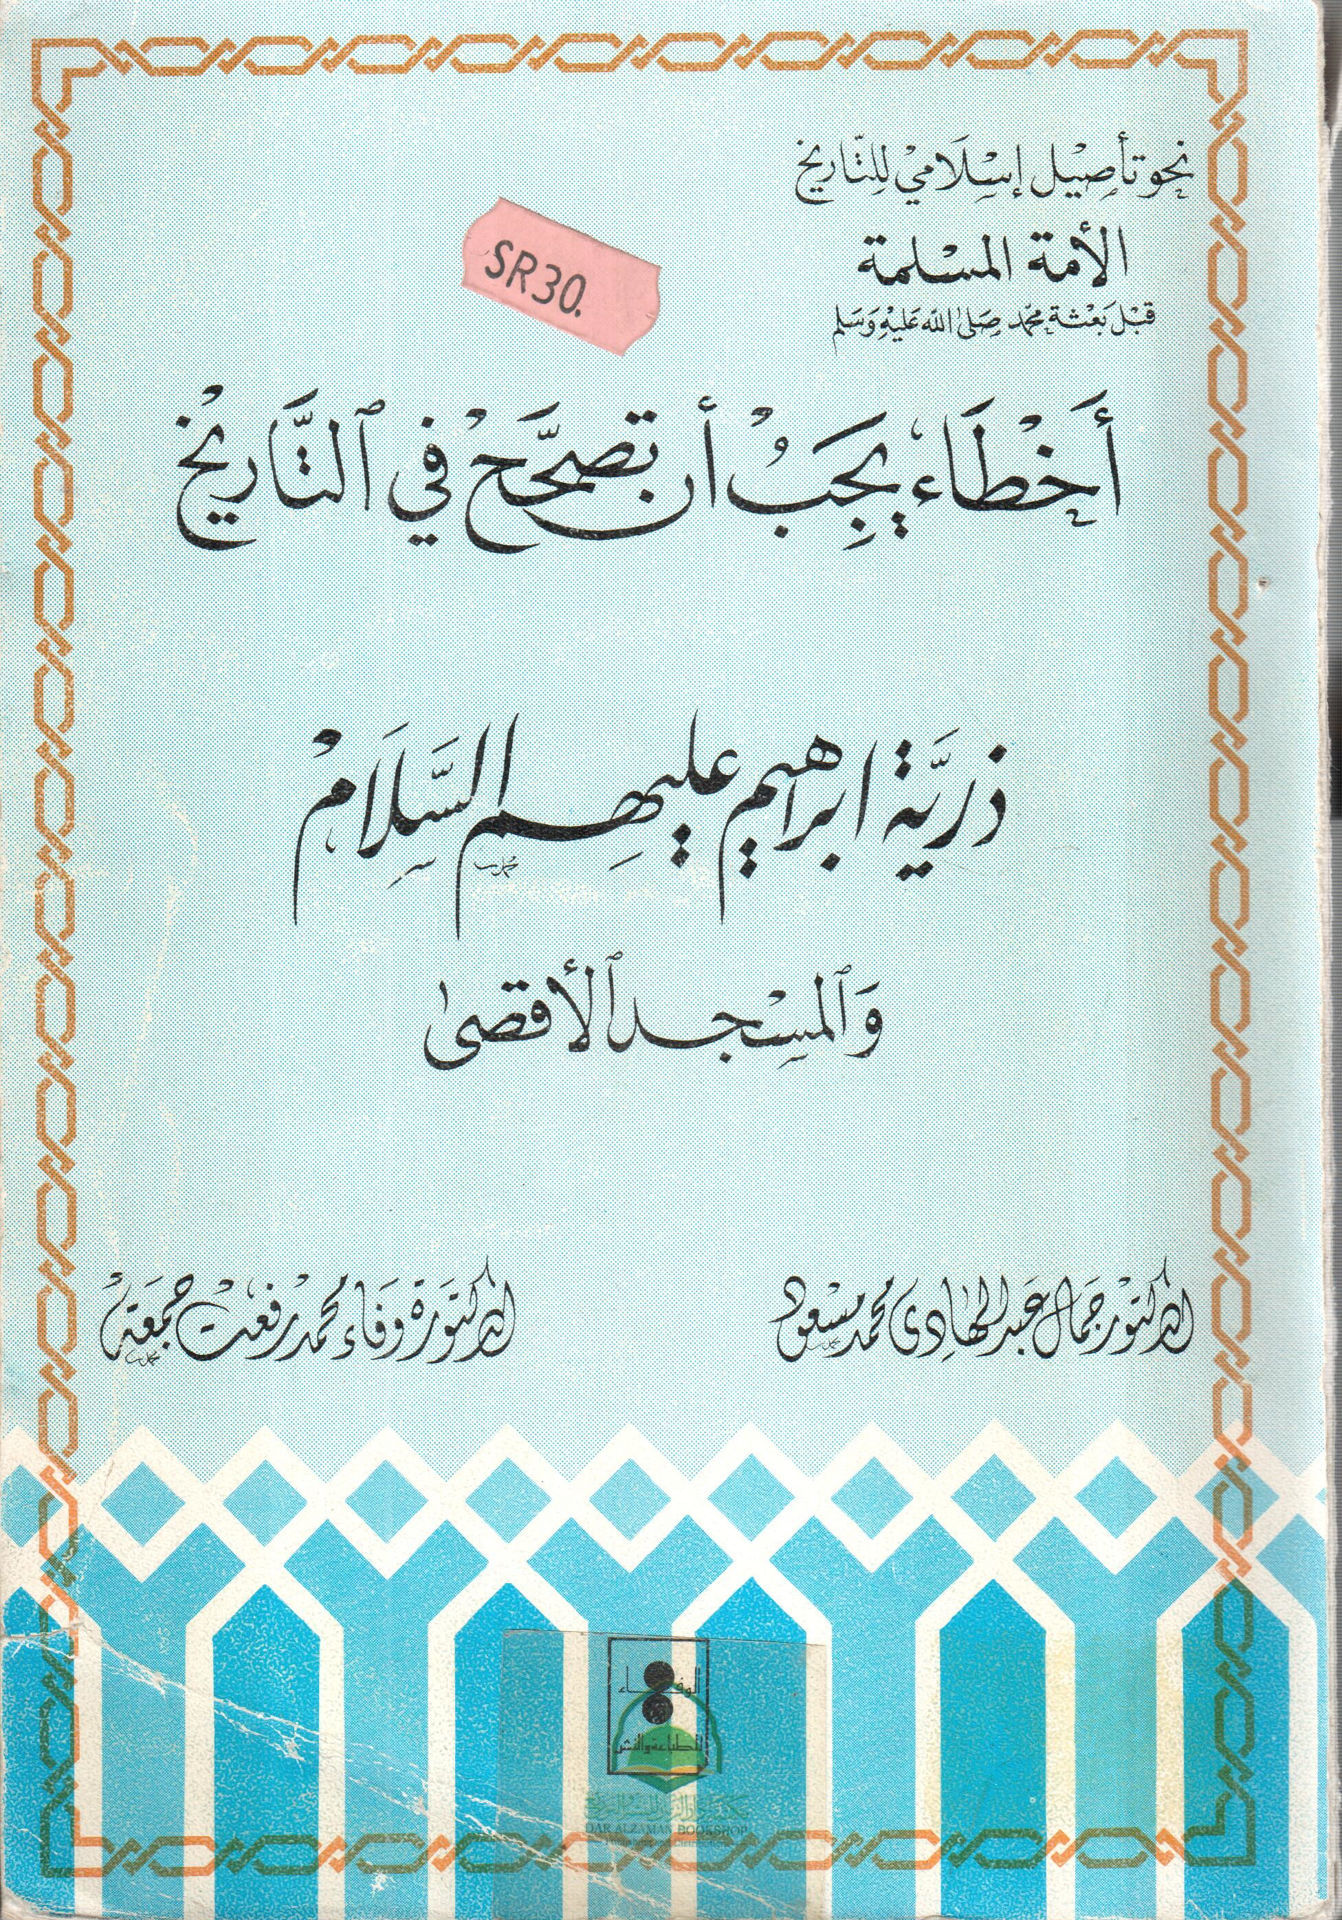 نحو تأصيل إسلامي للتاريخ
الأمة المسلمة
قبل بعثة محمد صلى الله عليه وسلم
SR30.
أخطاء يجب أن تصحح في التاريخ
ذرية ابراهيم عليهم السلام
والمسجد الأقصى
الدكتور جمال عبد الهادي محمد مسعود
الدكتورة وفاء محمد رفعت جمعة
الوفاء
للطباعة والنشر
DAR ALZAMAN BOOKSHOP